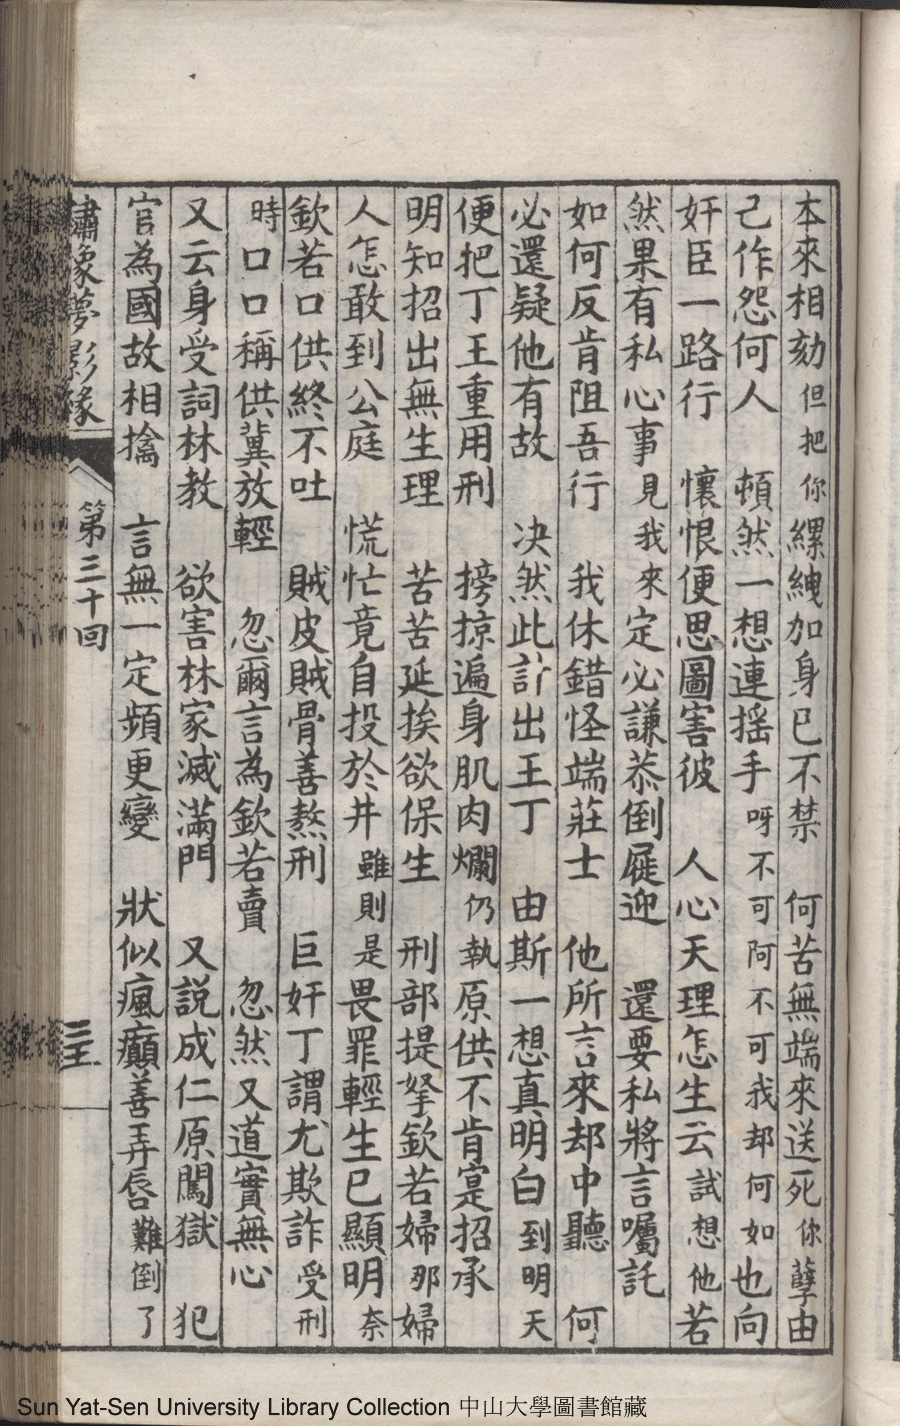 本來相劾但把你縲絏加身已不禁　何苦無端來送死你孽由
己作怨何人　頓然一想連摇手呀不可阿不可我却何如也向
奸臣一路行　懷恨便思圖害彼　人心天理怎生云試想他若
然果有私心事見我來定必謙恭倒屣迎　還要私將言囑託
如何反肯阻吾行　我休錯怪端莊士　他所言來却中聽　何
必還疑他有故　决然此計出王丁　由斯一想真明白到明天
便把丁王重用刑　搒掠遍身肌肉爛仍執原供不肯寔招承
明知招出無生理　苦苦延挨欲保生　刑部提拏欽若婦那婦
人怎敢到公庭　慌忙竟自投於井雖則是畏罪輕生已顯明奈
欽若口供終不吐　賊皮賊骨善熬刑　巨奸丁謂尤欺詐受刑
時口口稱供冀放輕　忽爾言為欽若賣　忽然又道實無心
又云身受詞林教　欲害林家滅滿門　又説成仁原闖獄　犯
官為國故相擒　言無一定頻更變　狀似瘋癲善弄唇難倒了
繡像夢影緣　第三十回
Sun Yat-Sen University Library Collection 中山大學圖書館藏